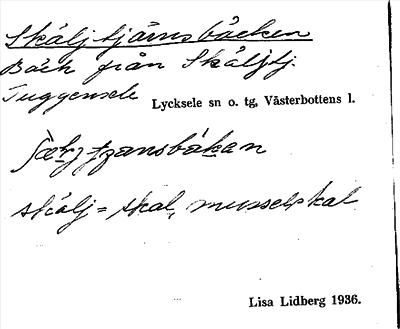 Skäljtjärnsbäcken
Bäck från Skäljtj.
Tuggensele
Lycksele sn o. tg, Västerbottens l.
skälj = skal, musselskal
Lisa Lidberg 1936.